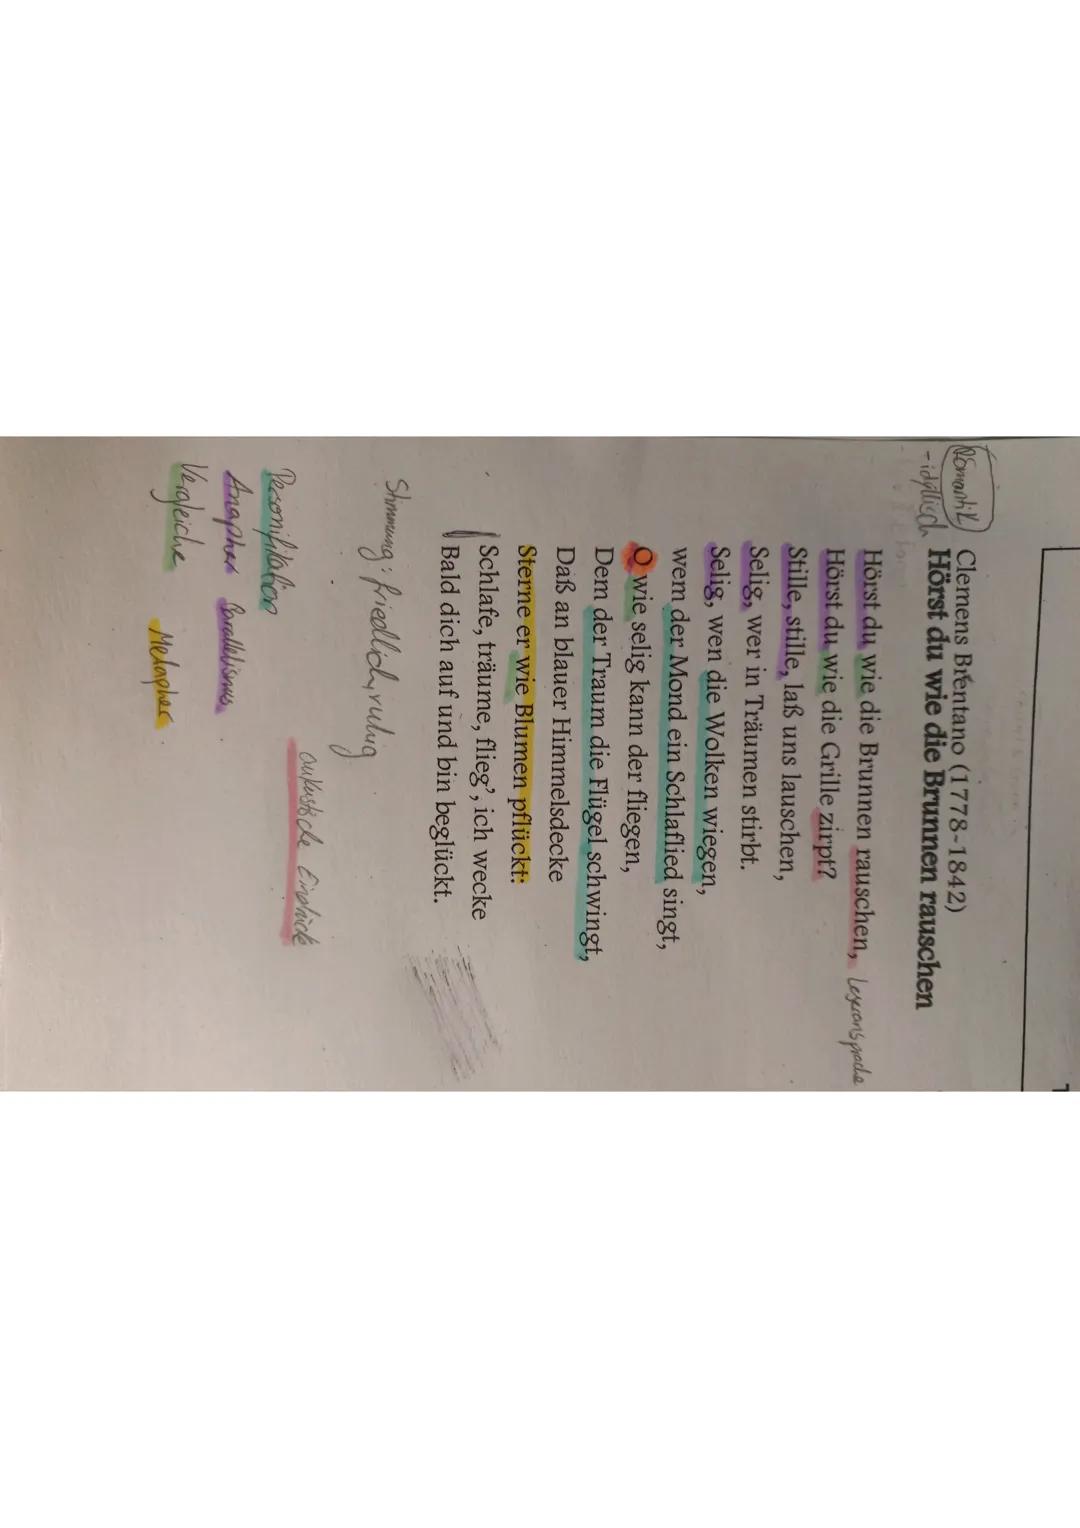 Romantik
-idyllisch
Clemens Brentano (1778-1842)
Hörst du wie die Brunnen rauschen
Hörst du wie die Brunnen rauschen, Leseransprache
Hörst du wie die Grille zirpt?
Stille, stille, laß uns lauschen,
Selig, wer in Träumen stirbt.
Selig, wen die Wolken wiegen,
wem der Mond ein Schlaflied singt,
O wie selig kann der fliegen,
Dem der Traum die Flügel schwingt,
Daß an blauer Himmelsdecke
Sterne er wie Blumen pflückt:
Schlafe, träume, flieg', ich wecke
Bald dich auf und bin beglückt.
Stimmung: friedlich, ruhig
akustische Eindrücke
Personifikation
Anapher Parallelismus
Vergleiche Metapher